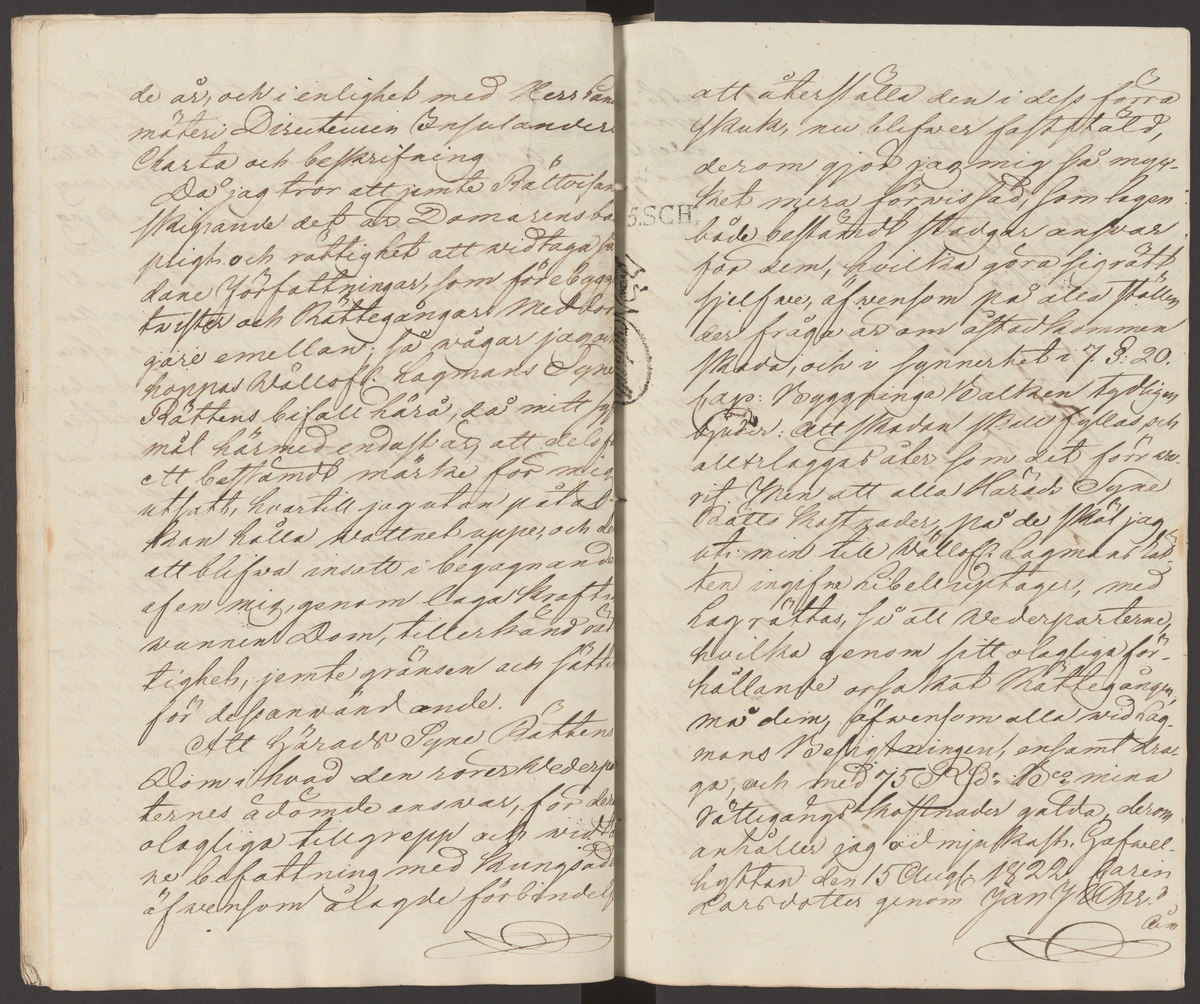 de är, och i enlighet med Herr Land
mäteri Directeuren Insulanders
Charta och beskrifning
Då jag tror att jemte Rättvisan
skigrande det är Domarens bo
pligt och rättighet att widtaga så
dane författningar, som förebygga
twister och Rättegångar Medbor
gare emellan; så wågar jag äf
hoppas Wällofl. Lagmans Syne
Rättens bifall härå, då mitt sy
mål härmed endast är, att dels få
ett bestämdt märke för mig
utsatt, hvartill jag utan påtal
kan hålla wattnet uppe, och de
att blifwa insatt i begagnande
af en mig, genom laga kraft
wunnen Dom, tillerkänd rät
tighet, jemte gränsen och sätte
för dess anwändande.
Att Härads Syne Rättens
Dom i hvad den rörer Wederpa
ternes ådömde answar, för dera
olagliga tillgrepp och widt
re befattning med Kungsåd
äfwensom ålagde förbindels
att återställa den i dess förra
skick, nu blifwer fastställd,
derom gjör jag mig så myc-
ket mera förwissad, som lagen
både bestämdt stadgar answar
för dem, hvilka göra sig rätt
sjelfwe, äfwensom på alla ställen
der fråga är om åstadkommen
skada, och i synnerhet i 7 §: 20.
Cap: Byggninga Balken tydligen
bjuder: Att skadan skall fyllas och
allt läggas åter som det förr wa-
rit. Men att alla Härads Syne
Rätts kostnader, på de skäl jag
uti min till Wällofl. Lagmans Rät-
ten ingifne Libell uptager, med
lag rättas, så att Wederparterne,
hvilka genom sitt olagliga för-
hållande orsakat Rättegången,
må dem, äfwensom alla wid Lag-
mans Besigtningen, ensamt dra-
ga, och med 75 RD: Bco mina
rättegångs kostnader gälda, derom
anhåller jag ödmjukast. Gafwel-
hyttan den 15 Aug. 1822. Carin
Larsdotter genom Jan J Ehr:
5.SCH.